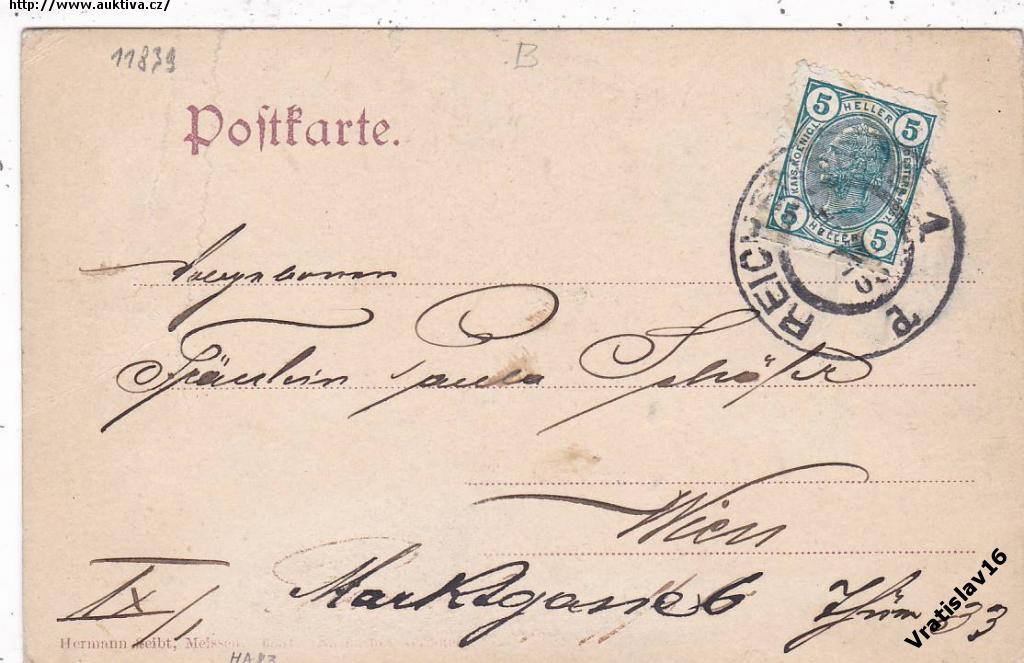 http://www.auktiva.cz/
11839
B
Postkarte.
5 HELLER 5
KAIS. KOENIGL. OESTERR. POST.
5 HELLER 5
REICHE
1
Wohlgeboren
Fräulein Paula Schäfer
Wien
IX/1
Marktgasse 6 Thür 33
Hermann Seibt, Meissen.
HA83
Vratislav16